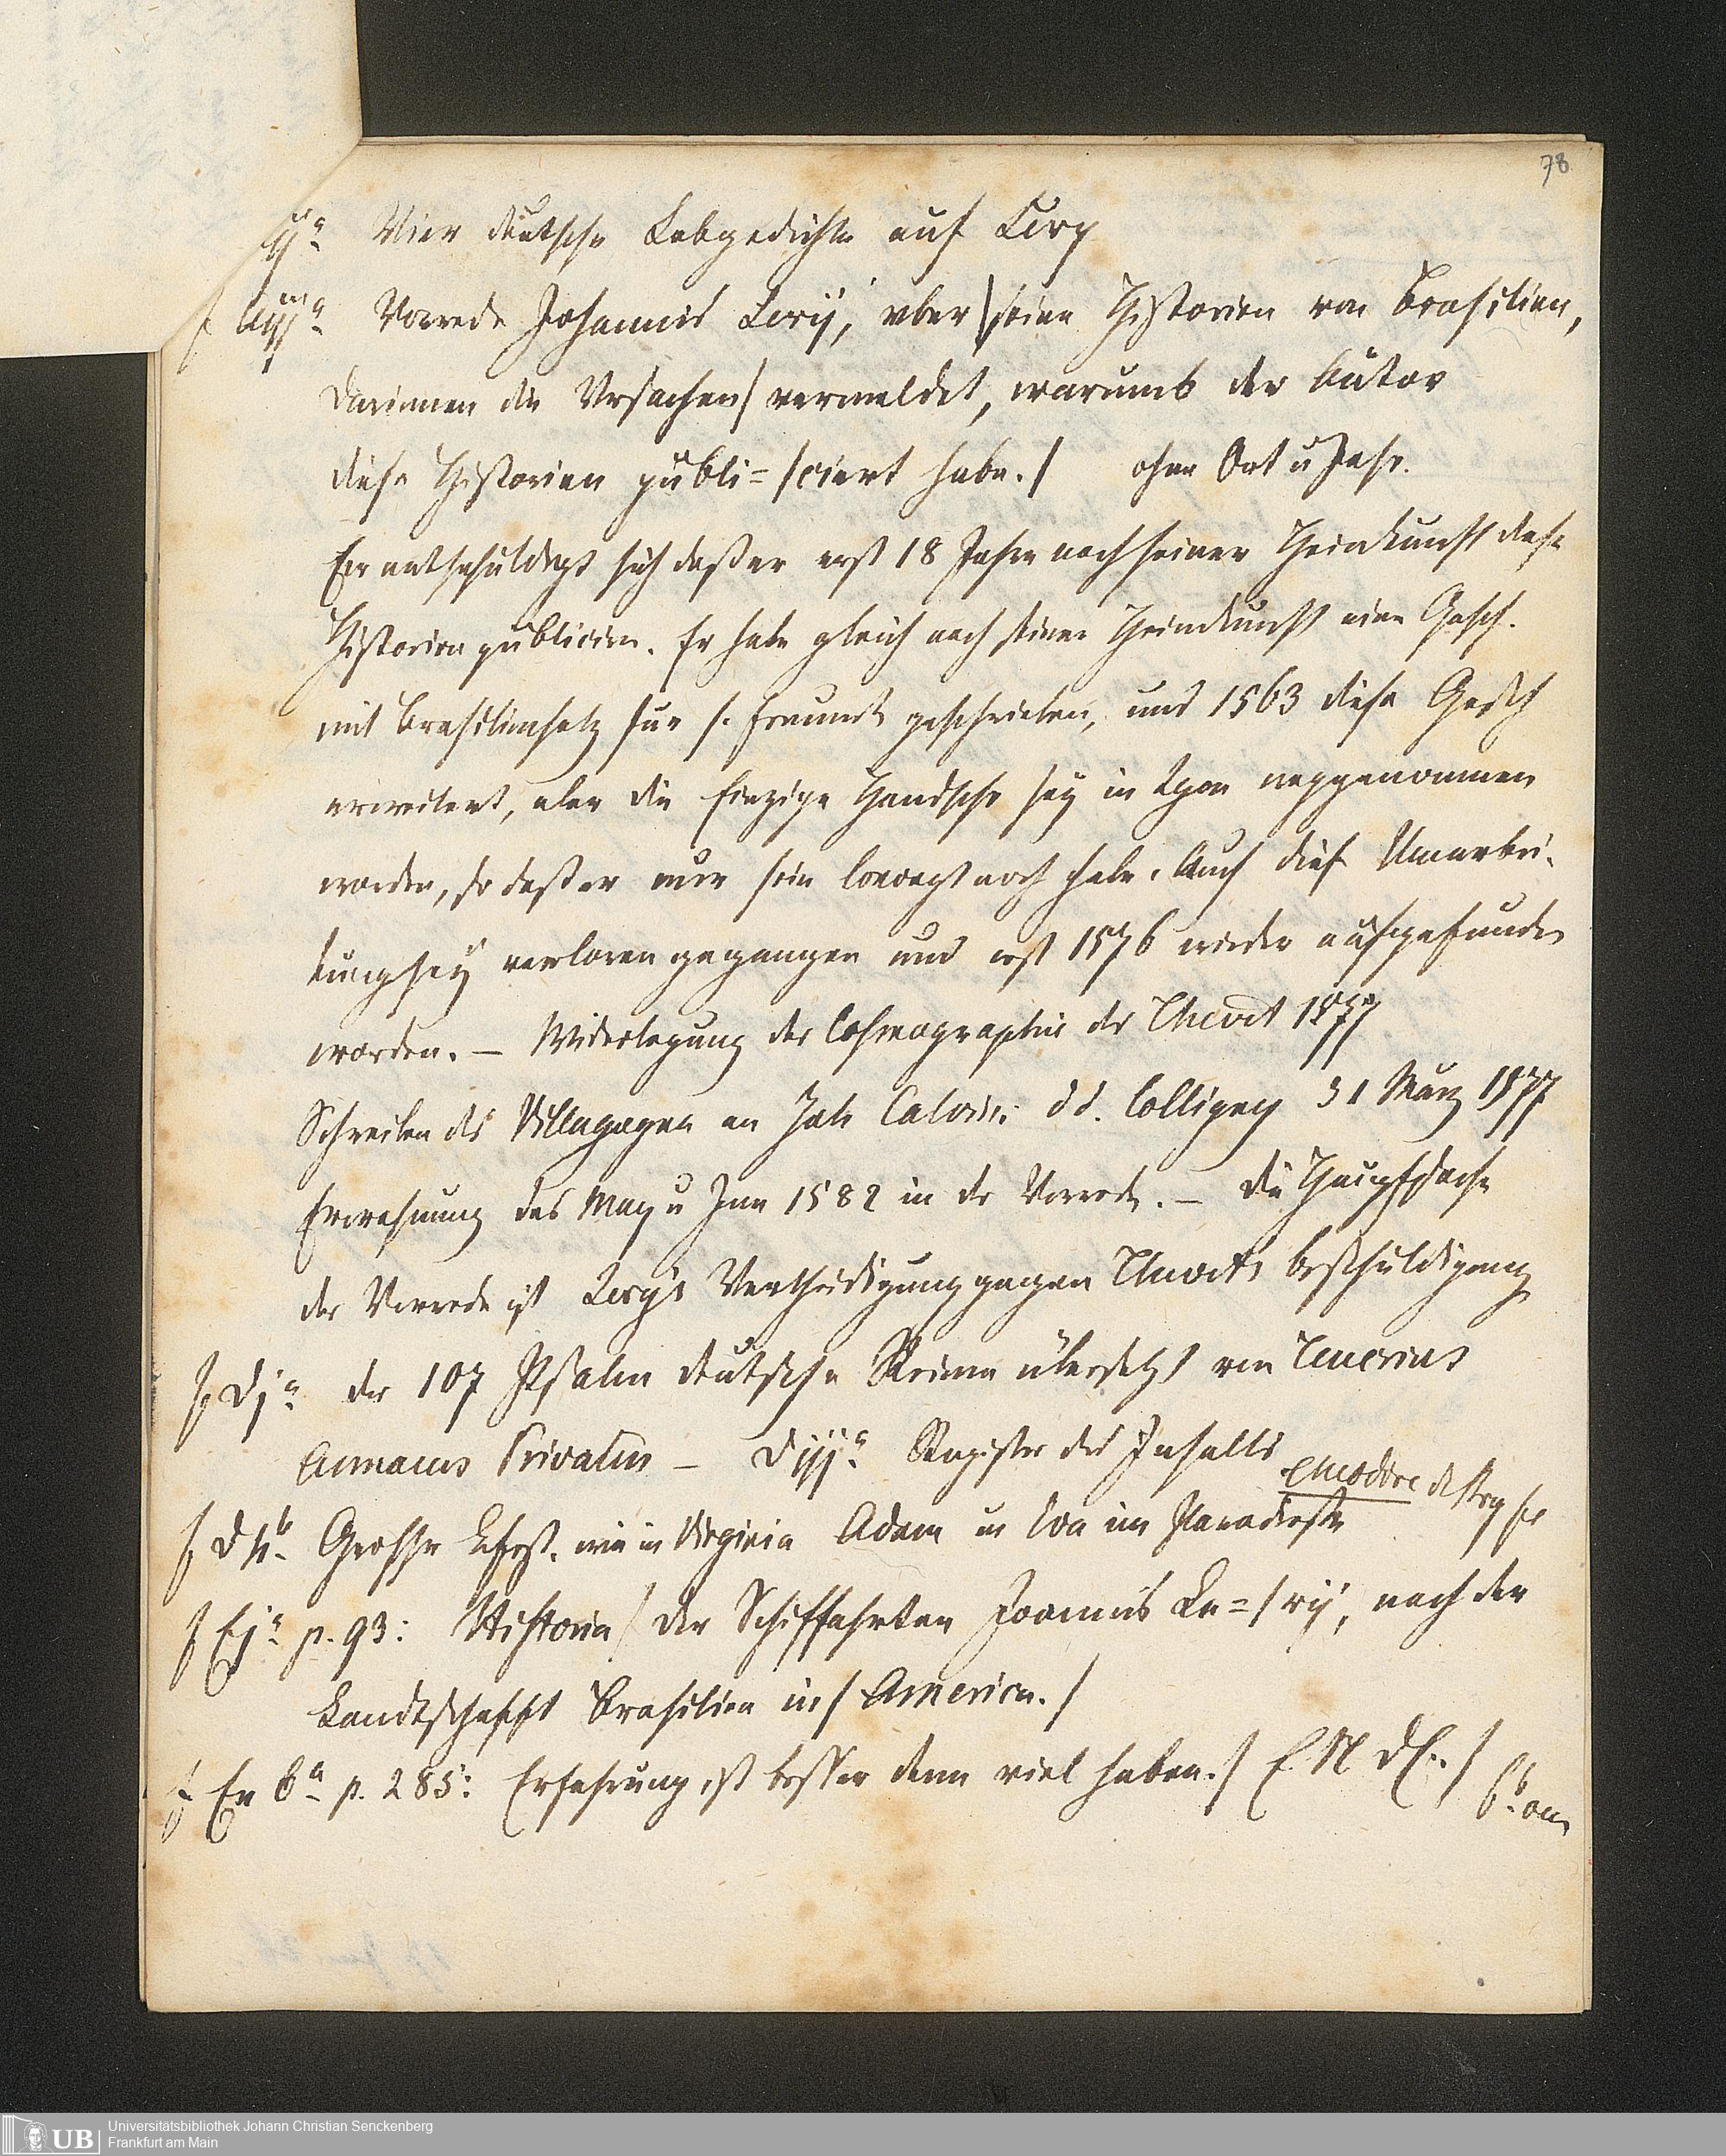 78
ij a Vier deutsche Lobgedichte auf Lery
f Aiij a Vorrede Johannis Lerij, vber | seine Historien von Brasilien,
Darinnen die Vrsachen | vermeldet, warumb der Autor
diese Historien publi= | ciert habe. | ohne Ort u Jahr.
Er entschuldigt sich daß er erst 18 Jahre nach seiner Heimkunft diese
Historien publiciere. Er habe gleich nach seiner Heimkunft eine Gesch.
mit Brasilienholz für s. Freunde geschrieben, und 1563 diese Gesch
erweitert, aber die einzige Handschr sey in Lyon weggenommen
worden, so daß er nur sein Concept noch habe. Auch diese Umarbei-
tung sey verloren gegangen und erst 1576 wieder aufgefunden
worden. — Widerlegung der Cosmographie des Thevet 1577
Schreiben des Villagagnon an Joh Calvin dd. Colligny 31 März 1577
Erwehnung des May u Jun 1582 in der Vorrede. — Die Hauptsache
der Vorrede ist Lery's Vertheidigung gegen Thevets Beschuldigung
f Dj a der 107 Psalm deutsche Reime übersetzt von
Annaeus Privatus — Diij a Register des Inhalts
f D b Grosser Kpfst. wie in Virginia Adam u Eva im Paradiese de Bry fe
f Ej a p. 93: Historia | der Schiffahrten Joannis Le= | rij, nach der
Landtschafft Brasilien in | America. |
f p. 285: Erfahrung ist besser denn viel haben. | E N D E. |